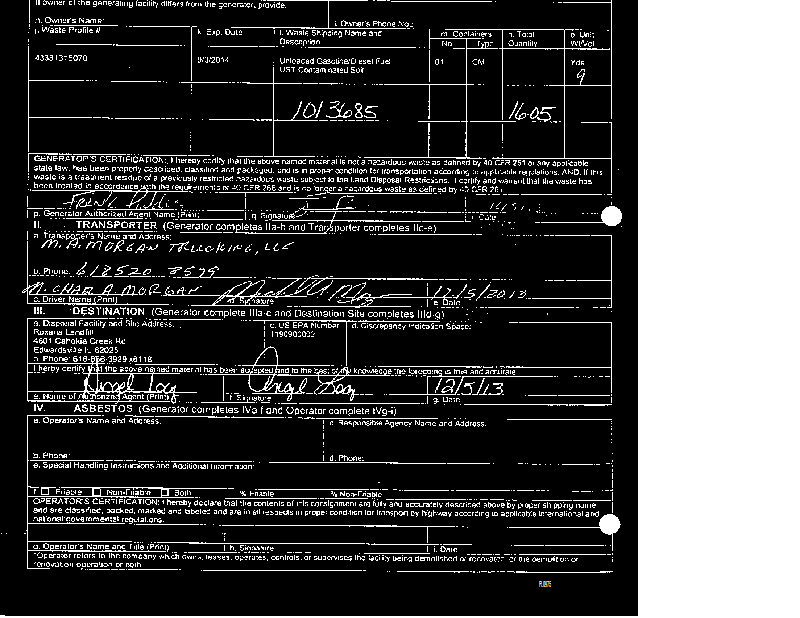 If owner of the generating facility differs from the generator, provide.
h. Owner's Name: i. Owner's Phone No.:
j. Waste Profile # k. Exp. Date l. Waste Shipping Name and Description m. Containers n. Total Quantity o. Unit Wt/Vol
No. Type
9/3/2014 Unleaded Gasoline/Diesel Fuel 01 CM Yds
UST Contaminated Soil 9
1013685 1605
GENERATOR'S CERTIFICATION: I hereby certify that the above named material is not a hazardous waste as defined by 40 CFR 261 or any applicable
state law, has been properly described, classified and packaged, and is in proper condition for transportation according to applicable regulations, AND, if this
waste is a treatment residue of a previously restricted hazardous waste subject to the Land Disposal Restrictions, I certify and warrant that the waste has
been treated in accordance with the requirements of 40 CFR 268 and is no longer a hazardous waste as defined by 40 CFR 261
p. Generator Authorized Agent Name (Print) q. Signature r. Date
II. TRANSPORTER (Generator completes IIa-b and Transporter completes IIc-e)
a. Transporter's Name and Address:
M.A. MORGAN TRUCKING, LLC
b. Phone: 618 520 8579
MICHAEL A. MORGAN 12/5/2013
c. Driver Name (Print) d. Signature e. Date
III. DESTINATION (Generator complete IIIa-c and Destination Site completes IIId-g)
a. Disposal Facility and Site Address: c. US EPA Number d. Discrepancy Indication Space:
Roxana Landfill
4601 Cahokia Creek Rd
Edwardsville IL 62025
b. Phone:
I hereby certify that the above named material has been accepted and to the best of my knowledge the foregoing is true and accurate
12/5/13
e. Name of Authorized Agent (Print) f. Signature g. Date
IV. ASBESTOS (Generator completes IVa-f and Operator complete IVg-i)
a. Operator's Name and Address: c. Responsible Agency Name and Address:
b. Phone: d. Phone:
e. Special Handling Instructions and Additional Information:
f. Friable Non-Friable Both % Friable % Non-Friable
OPERATOR'S CERTIFICATION: I hereby declare that the contents of this consignment are fully and accurately described above by proper shipping name
and are classified, packed, marked and labeled and are in all respects in proper condition for transport by highway according to applicable international and
national governmental regulations.
g. Operator's Name and Title (Print) h. Signature i. Date
*Operator refers to the company which owns, leases, operates, controls, or supervises the facility being demolished or renovated, or the demolition or
renovation operation or both